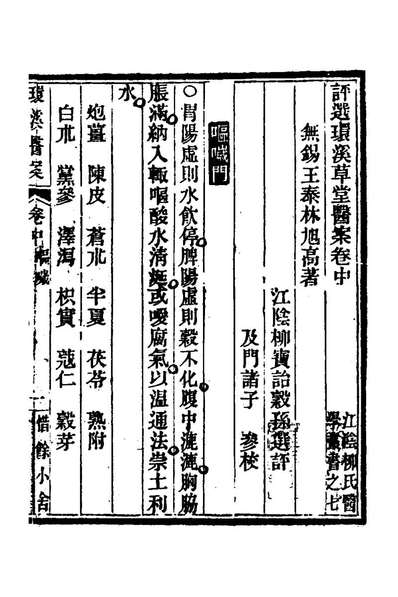 評選環溪草堂醫案卷中
江陰柳氏醫
學叢書之七
無錫王泰林旭高著
江陰柳寶詒穀孫選評
及門諸子 參校
嘔噦門
○胃陽虛則水飲停脾陽虛則穀不化腹中漉漉胸脇
脹滿納入輒嘔酸水清麵或噯腐氣以温通法崇土利
水
炮薑 陳皮 蒼朮 半夏 茯苓 熟附
白朮 黨參 澤瀉 枳實 蔻仁 穀芽
環溪醫案 卷中 嘔噦 一 惜餘小舍